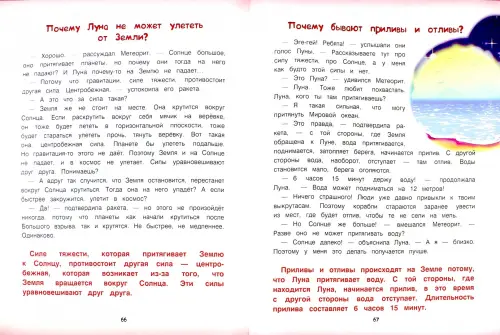 Почему Луна не может улететь
от Земли?
— Хорошо, — рассуждал Метеорит. — Солнце большое,
оно притягивает планеты, но почему они тогда на него
не падают? И Луна почему-то на Землю не падает...
— Потому что гравитации, силе тяжести, противостоит
другая сила. Центробежная, — успокоила его ракета.
— А это что за сила такая?
— Земля же не стоит на месте. Она крутится вокруг
Солнца. Если раскрутить вокруг себя мячик на верёвке,
он тоже будет лететь в горизонтальной плоскости, тоже
будет стараться улететь прочь, тянуть верёвку. Вот такая
она, центробежная сила. Планеты бы улетели подальше.
Но гравитация-то этого не даёт! Поэтому Земля и на Солнце
не падает, и в космос не улетает. Силы уравновешивают
друг друга. Понимаешь?
— А вдруг так случится, что Земля остановится, перестанет
вокруг Солнца крутиться. Тогда она на него упадёт? А если
быстрее закрутится, улетит в космос?
— Да! — подтвердила ракета, — но этого не произойдёт
никогда, потому что планеты как начали крутиться после
Большого взрыва, так и крутятся. Не быстрее, не медленнее.
Одинаково.
Силе тяжести, которая притягивает Землю
к Солнцу, противостоит другая сила — центро-
бежная, которая возникает из-за того, что
Земля вращается вокруг Солнца. Эти силы
уравновешивают друг друга.
66
Почему бывают приливы и отливы?
— Эге-гей! Ребята! — услышали они
голос Луны. — Рассказываете тут про
силу тяжести, про Солнце, а у меня
как будто этой силы и нет.
— Это Луна? — удивился Метеорит.
— Луна. Тоже любит похвастать.
Луна, кого ты там притягиваешь?
— Я такая сильная, что могу
притянуть Мировой океан.
— Это правда, — подтвердила ра-
кета, — с той стороны, где Земля
обращена к Луне, вода притягивается,
поднимается, затопляет берега, начинается прилив. С другой
стороны вода, наоборот, отступает — там отлив. Воды
становится мало, берега оголяются.
— 6 часов 15 минут держу воду! — продолжала
Луна. — Вода может подниматься на 12 метров!
— Ничего страшного! Люди уже давно привыкли к твоим
выкрутасам. Поэтому корабли стараются заранее увести
из мест, где будет отлив, чтобы те не сели на мель.
— Но Солнце же больше! — вмешался Метеорит. —
Разве оно не может притягивать воду?
— Солнце далеко! — объяснила Луна. — А я — близко.
Поэтому у меня это делать получается лучше.
Приливы и отливы происходят на Земле потому,
что Луна притягивает воду. С той стороны, где
находится Луна, начинается прилив, в это время
с другой стороны вода отступает. Длительность
прилива составляет 6 часов 15 минут.
67